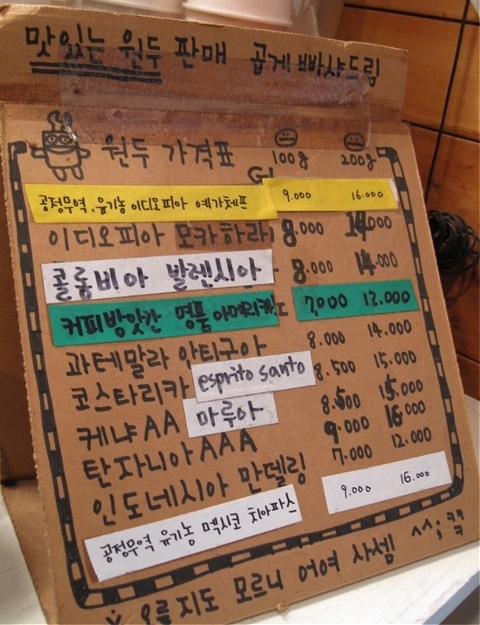 맛있는 원두 판매 곱게 빠샤드림
원두 가격표 100g 200g
공정무역.유기농 이디오피아 예가체프 9.000 16.000
이디오피아 모카하라 8.000 14.000
콜롬비아 발렌시아 8.000 14.000
커피방앗간 명품 7000 12.000
과테말라 안티구아 8.000 14.000
코스타리카 esprito santo 8.500 15.000
케냐AA 마루아 8.500 15.000
탄자니아AAA 9.000 16.000
인도네시아 만델링 7.000 12.000
공정무역 유기농 멕시코 치아파스 9.000 16.000
오를지도 모르니 어여 사셈 ^^;